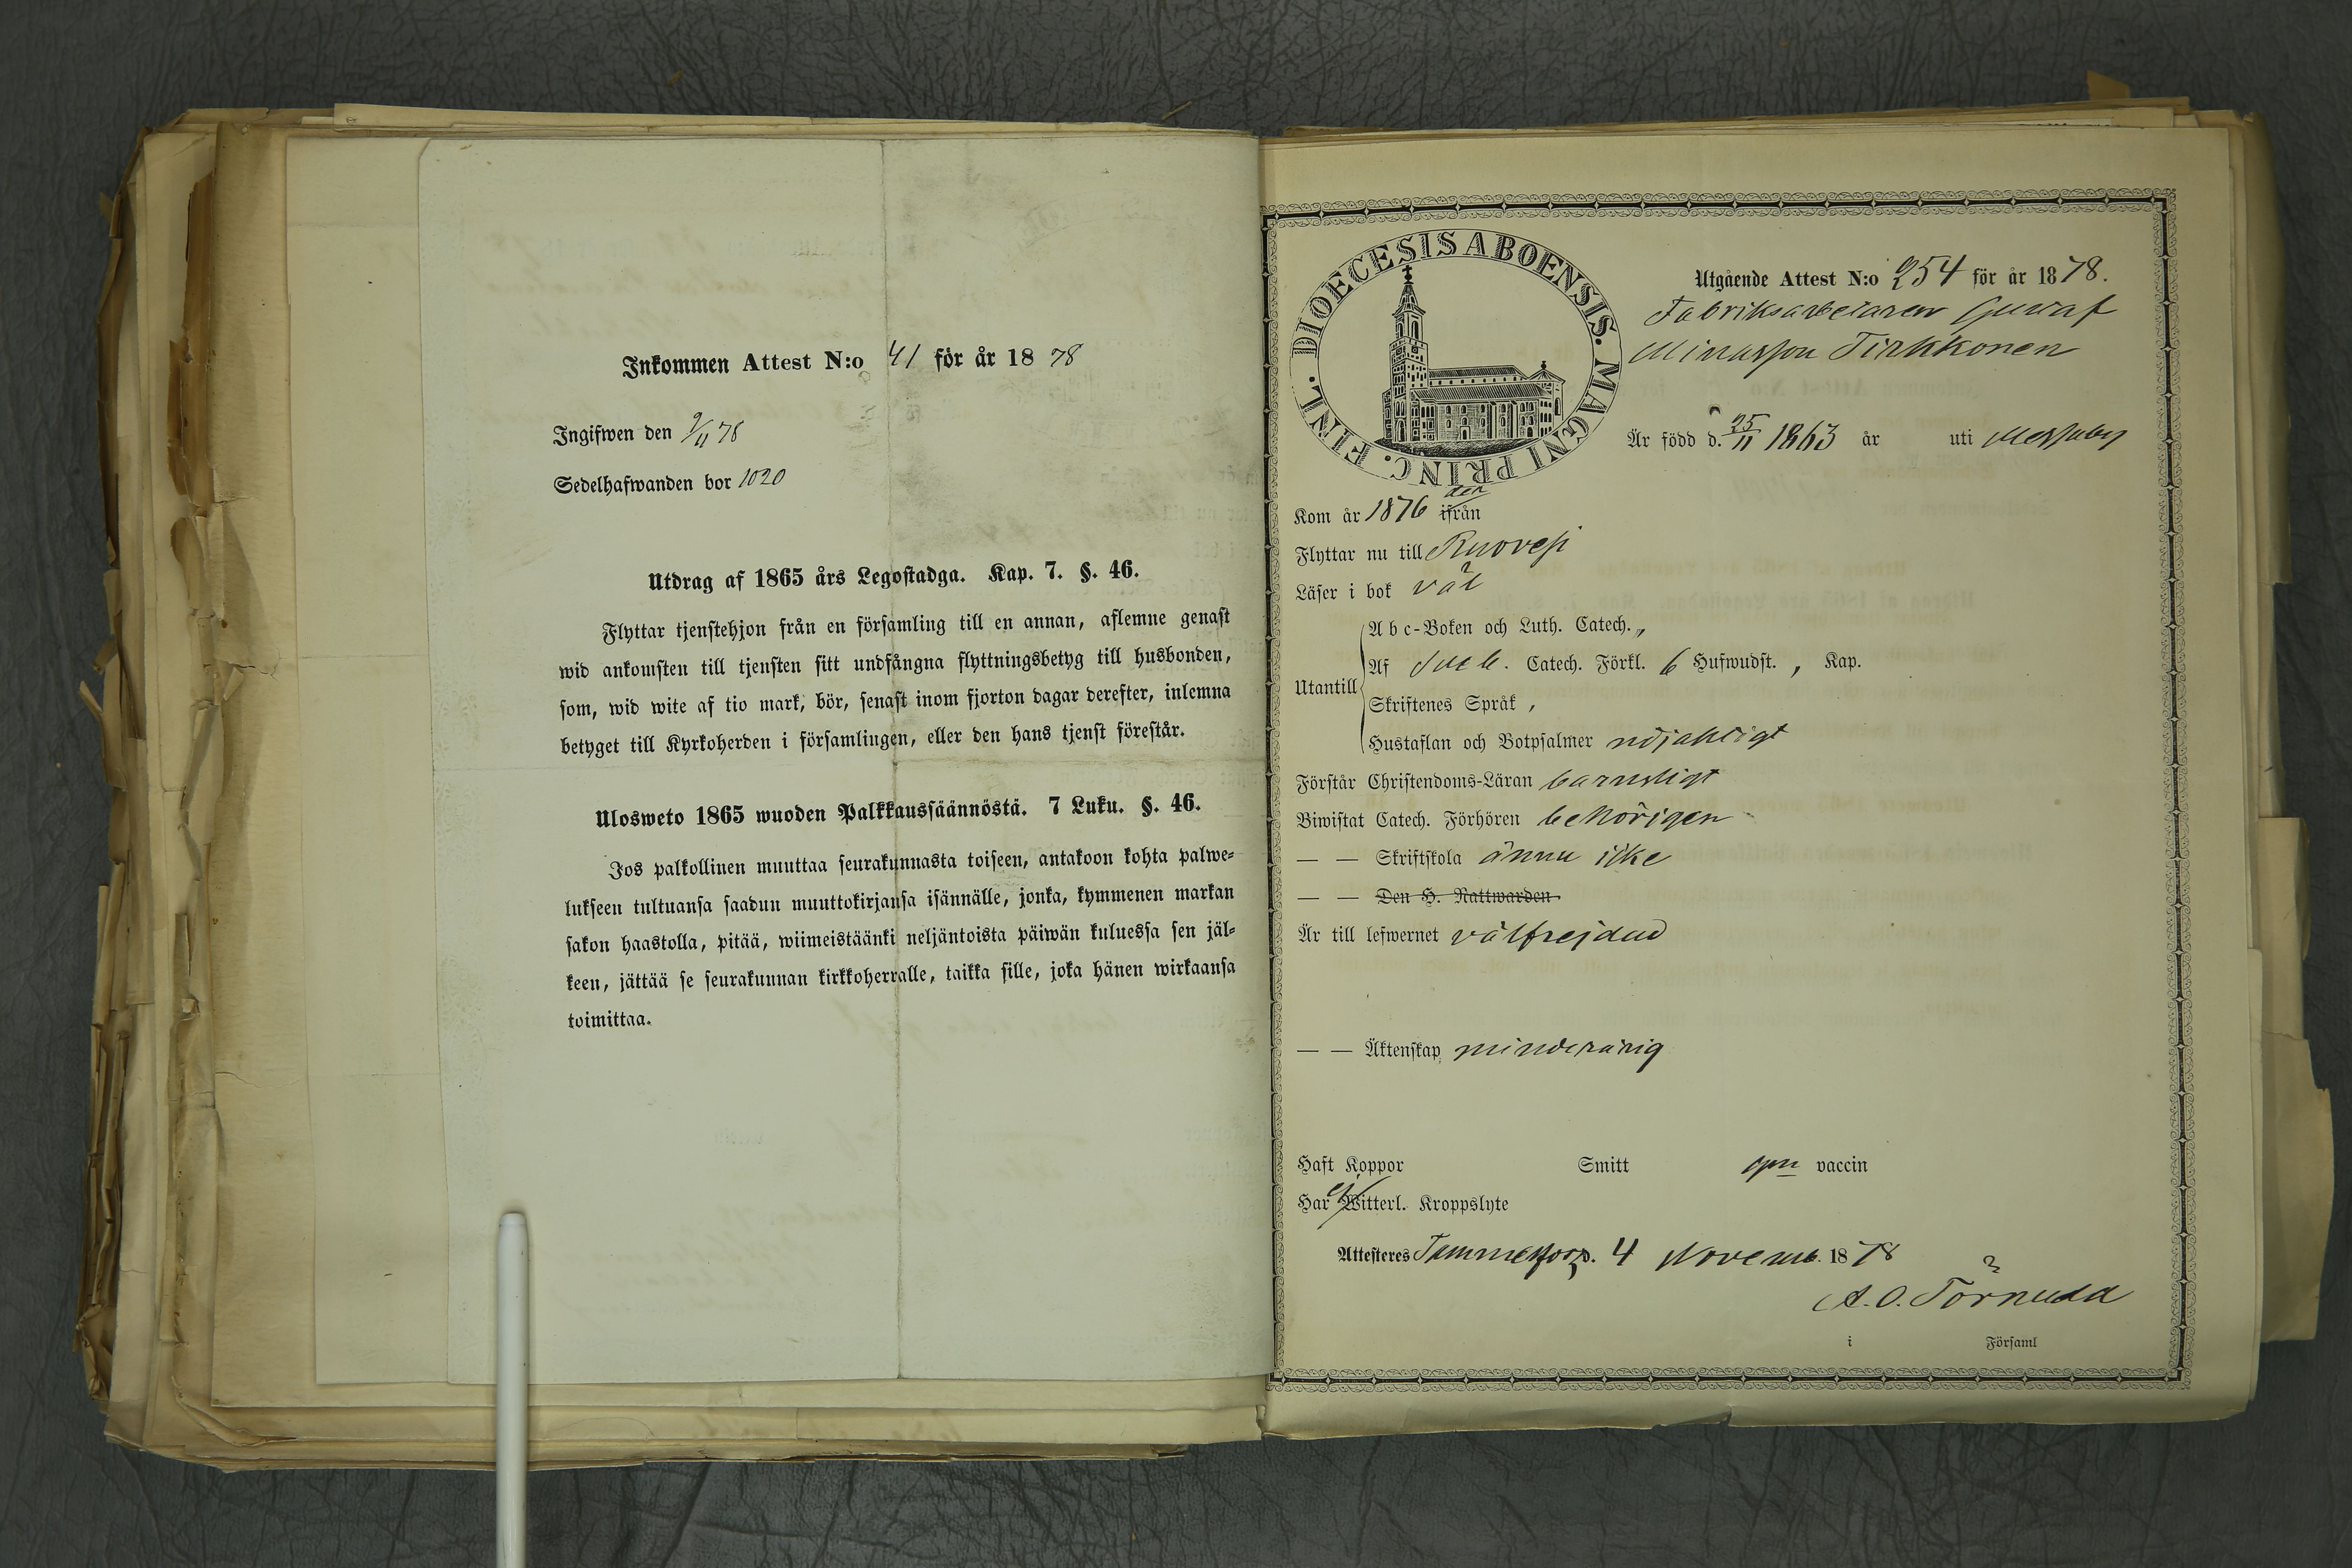 Inkommen Attest N:o 41 för år 18 78
Ingifwen den 9/11 78
Sedelhafwanden bor 1020
Utdrag af 1865 års Legostadga. Kap. 7. §. 46.
Flyttar tjenstehjon från en församling till en annan, aflemne genast
wid ankomsten till tjensten sitt undfångna flyttningsbetyg till husbonden,
som, wid wite af tio mark, bör, senast inom fjorton dagar derefter, inlemna
betyget till Kyrkoherden i församlingen, eller den hans tjenst förestår.
Ulosweto 1865 wuoden Palkkaussäännöstä. 7 Luku. §. 46.
Jos palkollinen muuttaa seurakunnasta toiseen, antakoon kohta palwe-
lukseen tultuansa saadun muuttokirjansa isännälle, jonka, kymmenen markan
sakon haastolla, pitää, wiimeistäänki neljäntoista päiwän kuluessa sen jäl-
keen, jättää se seurakunnan kirkkoherralle, taikka sille, joka hänen wirkaansa
toimittaa.
DIOECESIS ABOENSIS. MAGNI PRINC. FINL.
Utgående Attest N:o 254 för år 1878.
Fabriksarbetaren Gustaf
Tirkkonen
Är född d. 25/11 1863 år uti Messuby
Kom år 1876 den ifrån
Flyttar nu till Ruovesi
Läser i bok väl
Utantill
Abc-Boken och Luth. Catech. „
Af Sveb. Catech. Förkl. 6 Hufwudst. , Kap.
Skriftenes Språk ,
Hustaflan och Botpsalmer nöjaktigt
Förstår Christendoms-Läran barnsligt
Biwistat Catech. Förhören behörigen
— — Skriftskola ännu icke
— — Den H. Nattwarden
Är till lefwernet välfrejdad
— — Äktenskap minderårig
Haft Koppor Smitt vaccin
Har ej Witterl. Kroppslyte
Attesteres Tammerfors. 4 Novemb. 1878
A. O. Törnudd
i Församl